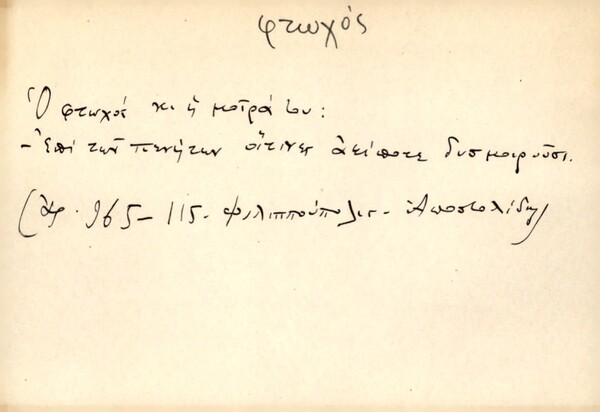 φτωχός
Ὁ φτωχός κι ἡ μοῖρά του:
- Ἐπί τῶν πενήτων οἵτινες ἀείποτε δυσμοιροῦσι.
(Ἀρ. 965 - 115 - Φιλιππούπολις - Ἀποστολίδης)